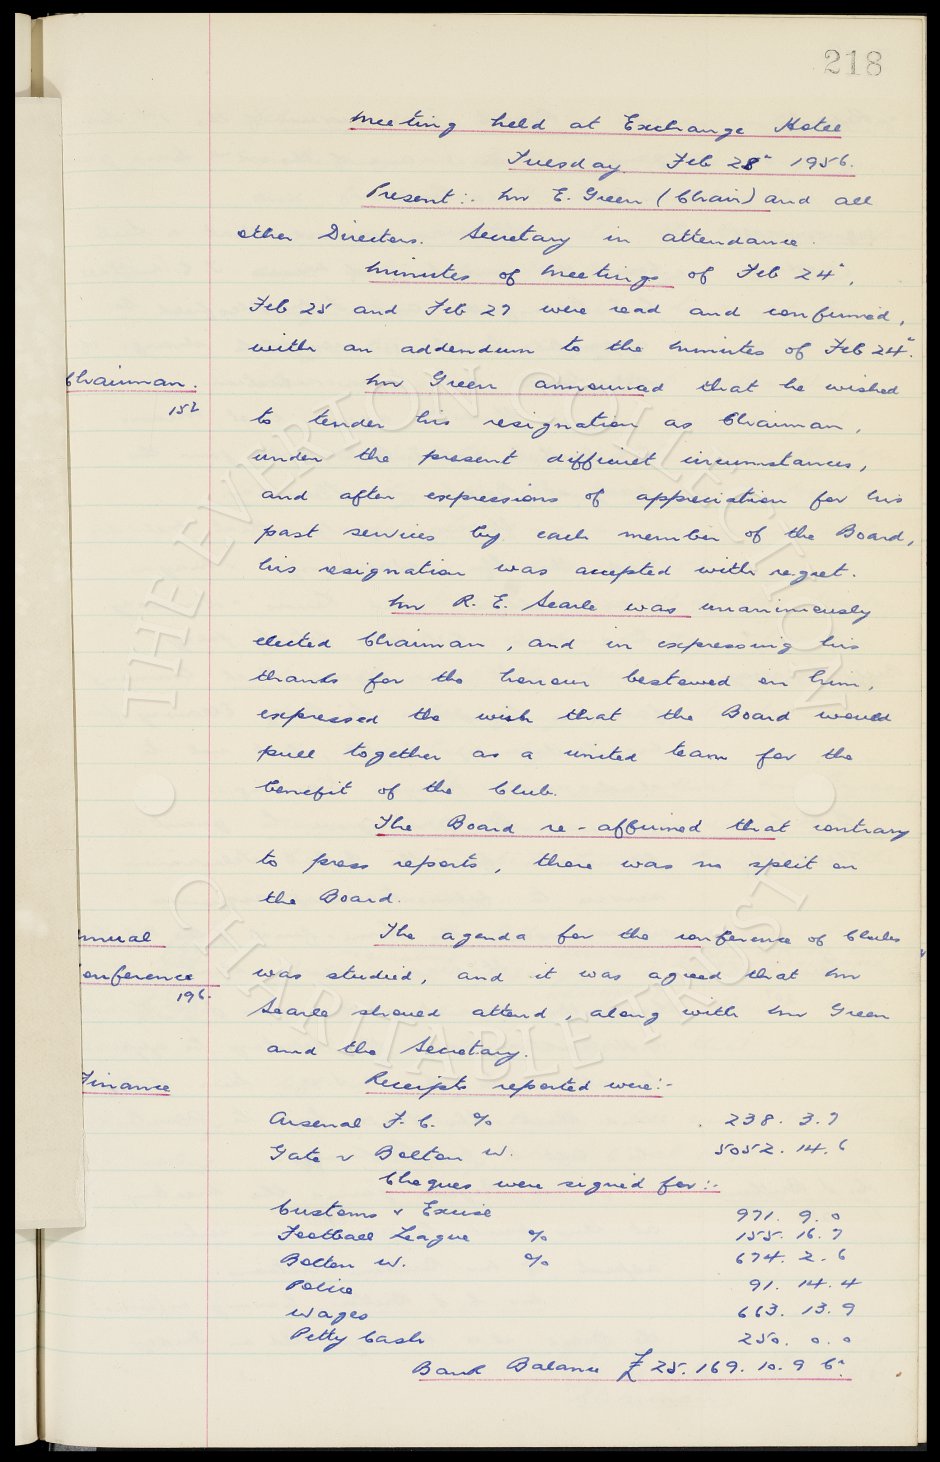 218
Meeting held at Exchange Hotel
Tuesday Feb 28" 1956.
Present:- Mr E. Green (Chair) and all
other Directors. Secretary in attendance.
Minutes of Meetings of Feb 24",
Feb 25 and Feb 27 were read and confirmed,
with an addendum to the minutes of Feb 24".
Chairman.
152
Mr Green announced that he wished
to tender his resignation as Chairman,
under the present difficult circumstances,
and after expressions of appreciation for his
past services by each member of the Board,
his resignation was accepted with regret.
Mr R. E. Searle was unanimously
elected Chairman, and in expressing his
thanks for the honour bestowed on him,
expressed the wish that the Board would
pull together as a united team for the
benefit of the Club.
The Board re-affirmed that contrary
to press reports, there was no split on
the Board.
nnual
onference
196.
The agenda for the conference of Clubs
was studied, and it was agreed that Mr
Searle should attend, along with Mr Green
and the Secretary.
Finance
Receipts reported were:-
Arsenal F.C. % 238. 3. 7
Gate v Bolton W. 5052. 14. 6
Cheques were signed for:-
Customs & Excise 971. 9. 0
Football League % 155. 16. 7
Bolton W. % 674. 2. 6
Police 91. 14. 4
Wages 663. 13. 9
Petty Cash 250. 0. 0
Bank Balance £25.169. 10. 9 Cr.
THE EVERTON COLLECTION
CHARITABLE TRUST